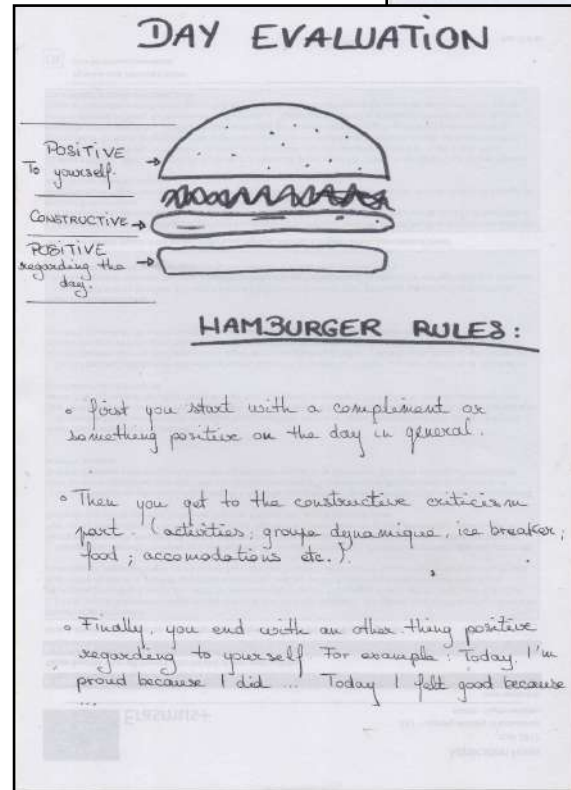 DAY EVALUATION
POSITIVE
To yourself.
CONSTRUCTIVE
POSITIVE
regarding the
day.
HAMBURGER RULES:
• first you start with a compliment or
something positive on the day in general.
• Then you get to the constructive criticism
part. (activities; groupe dynamique, ice breaker;
food; accomodations etc.).
• Finally, you end with an other thing positive
regarding to yourself For example: Today, I'm
proud because I did ... Today I felt good because
...
Erasmus+